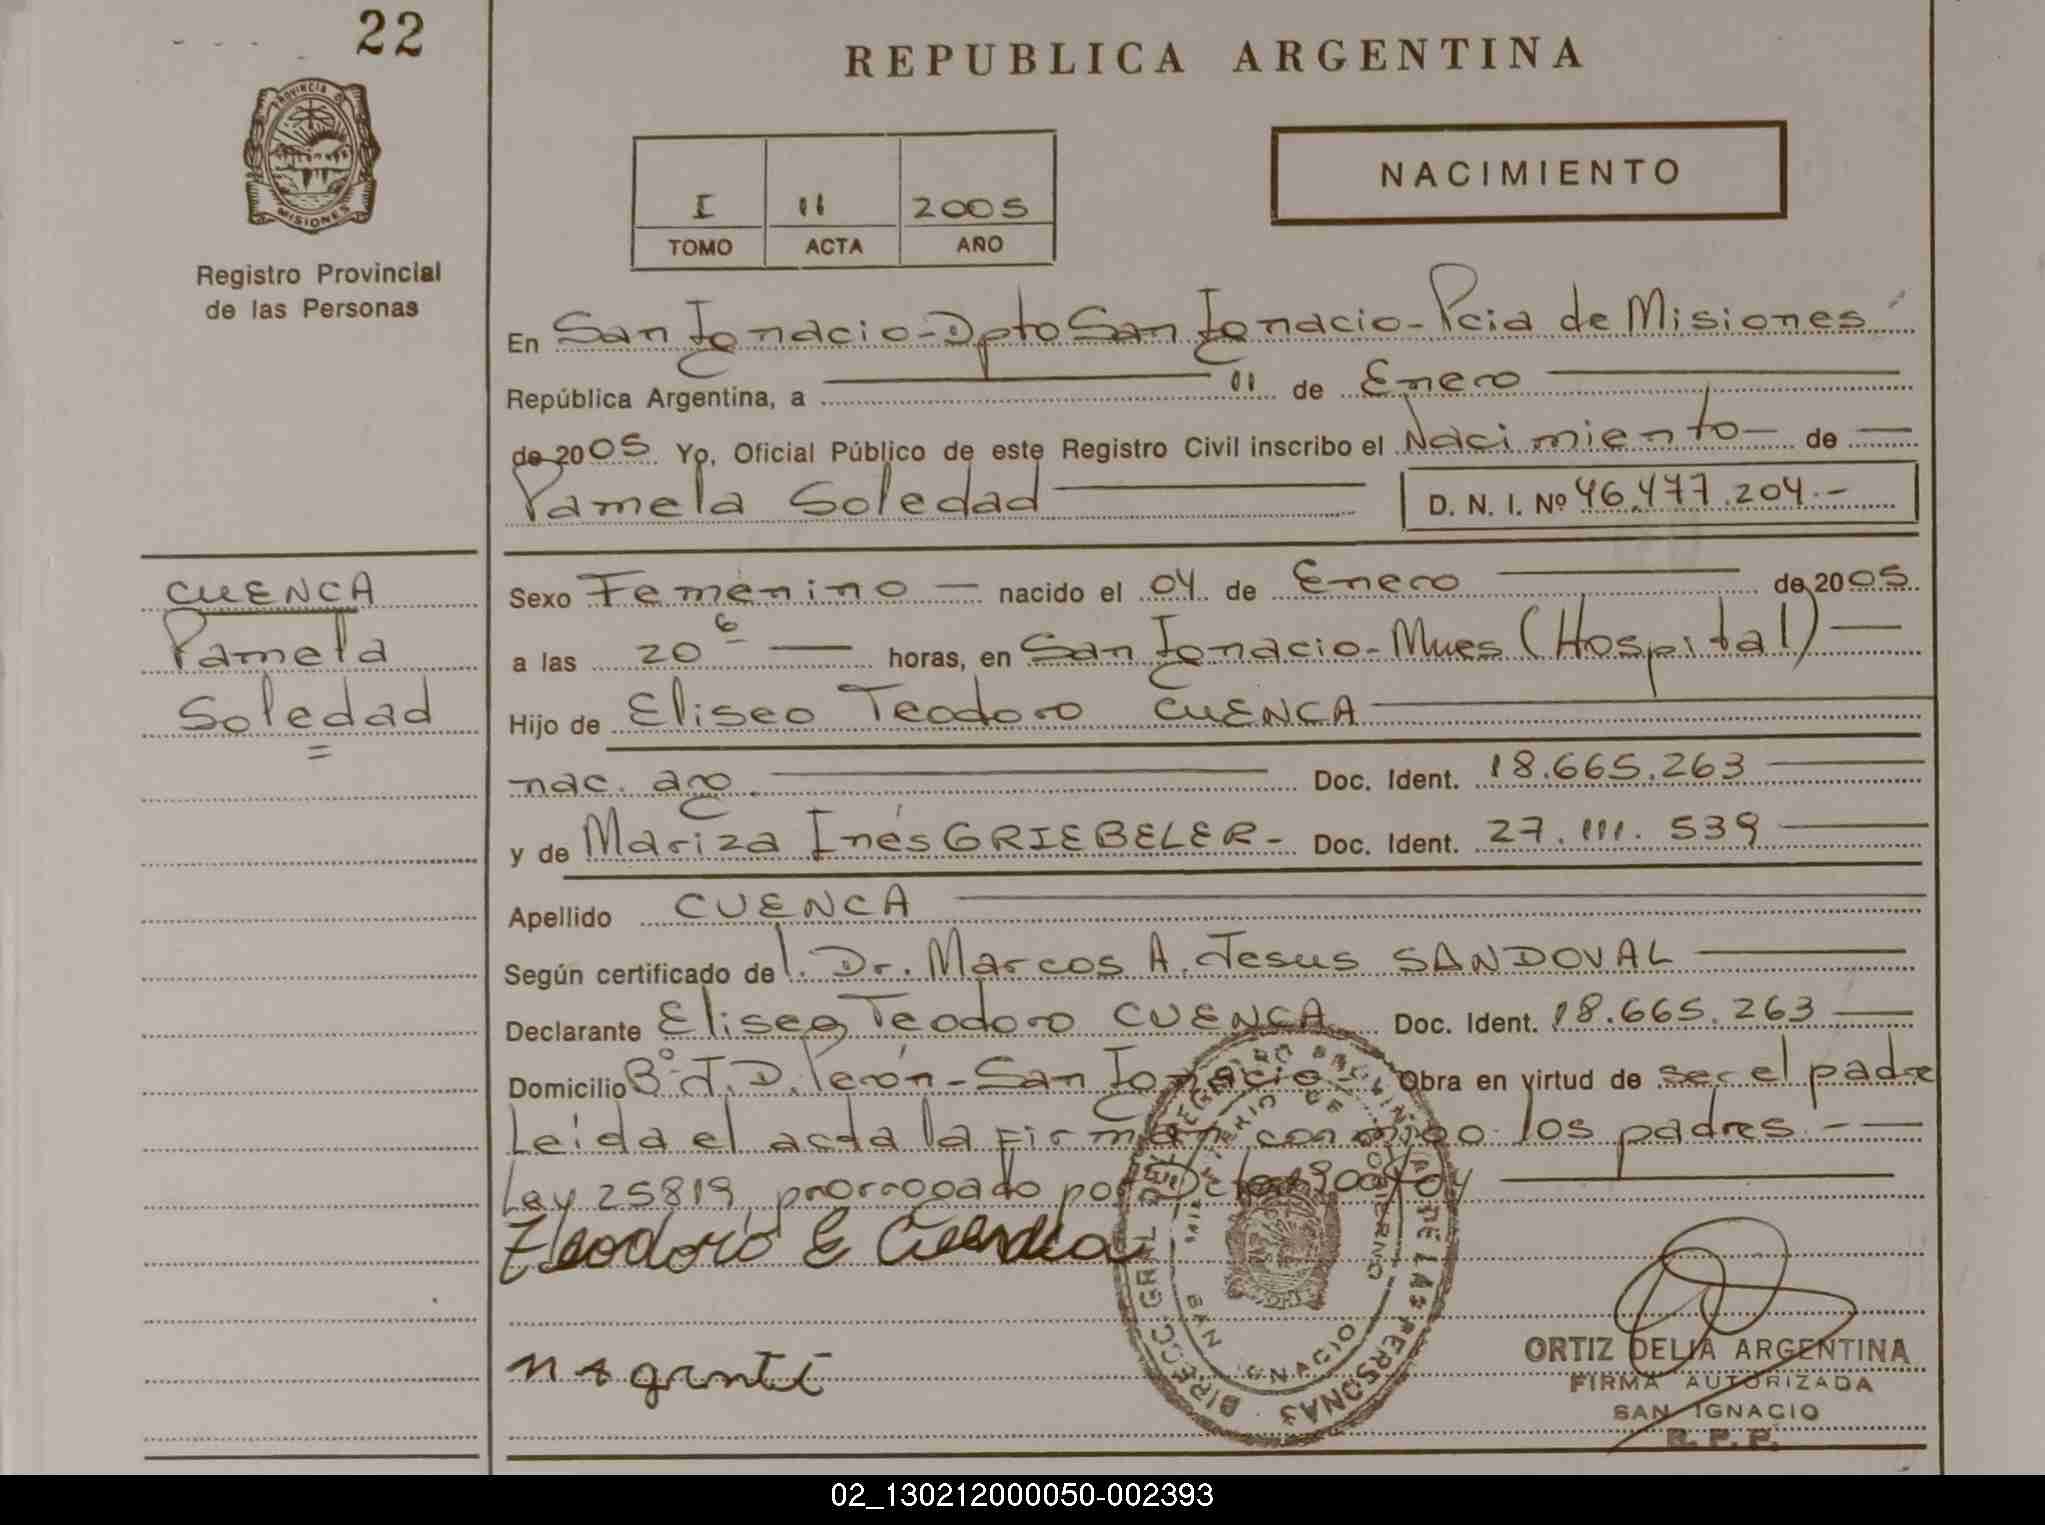 22
REPUBLICA ARGENTINA
PROVINCIA D
MISIONES
Registro Provincial
de las Personas
NACIMIENTO
I 11 2005
TOMO ACTA AÑO
En San Ignacio - Dpto San Ignacio - Pcia de Misiones
República Argentina, a 11 de Enero
de 2005 Yo, Oficial Público de este Registro Civil inscribo el Nacimiento - de -
Pamela Soledad D. N. I. Nº 46.477.204.-
CUENCA
Pamela
Soledad
=
Sexo Femenino - nacido el 04 de Enero de 2005
a las 20 6 horas, en San Ignacio - Mnes (Hospital)
Hijo de Eliseo Teodoro CUENCA
nac. arg. Doc. Ident. 18.665.263
y de Mariza Inés GRIEBELER - Doc. Ident. 27.111.539
Apellido CUENCA
Según certificado de l. Dr. Marcos A. Jesus SANDOVAL
Declarante Eliseo Teodoro CUENCA Doc. Ident. 18.665.263
Domicilio Bº J. D. Perón - San Ignacio - Obra en virtud de ser el padre
Leída el acta la firman conmigo los padres. - -
Ley 25819, prorrogado por
Teodoro E Cuenca
DIRECC. GRAL DEL REGISTRO PROVINCIAL DE LAS PERSONAS
MINISTERIO DE GOBIERNO
SAN IGNACIO
ORTIZ DELIA ARGENTINA
FIRMA AUTORIZADA
SAN IGNACIO
R. P. P.
02_130212000050-002393